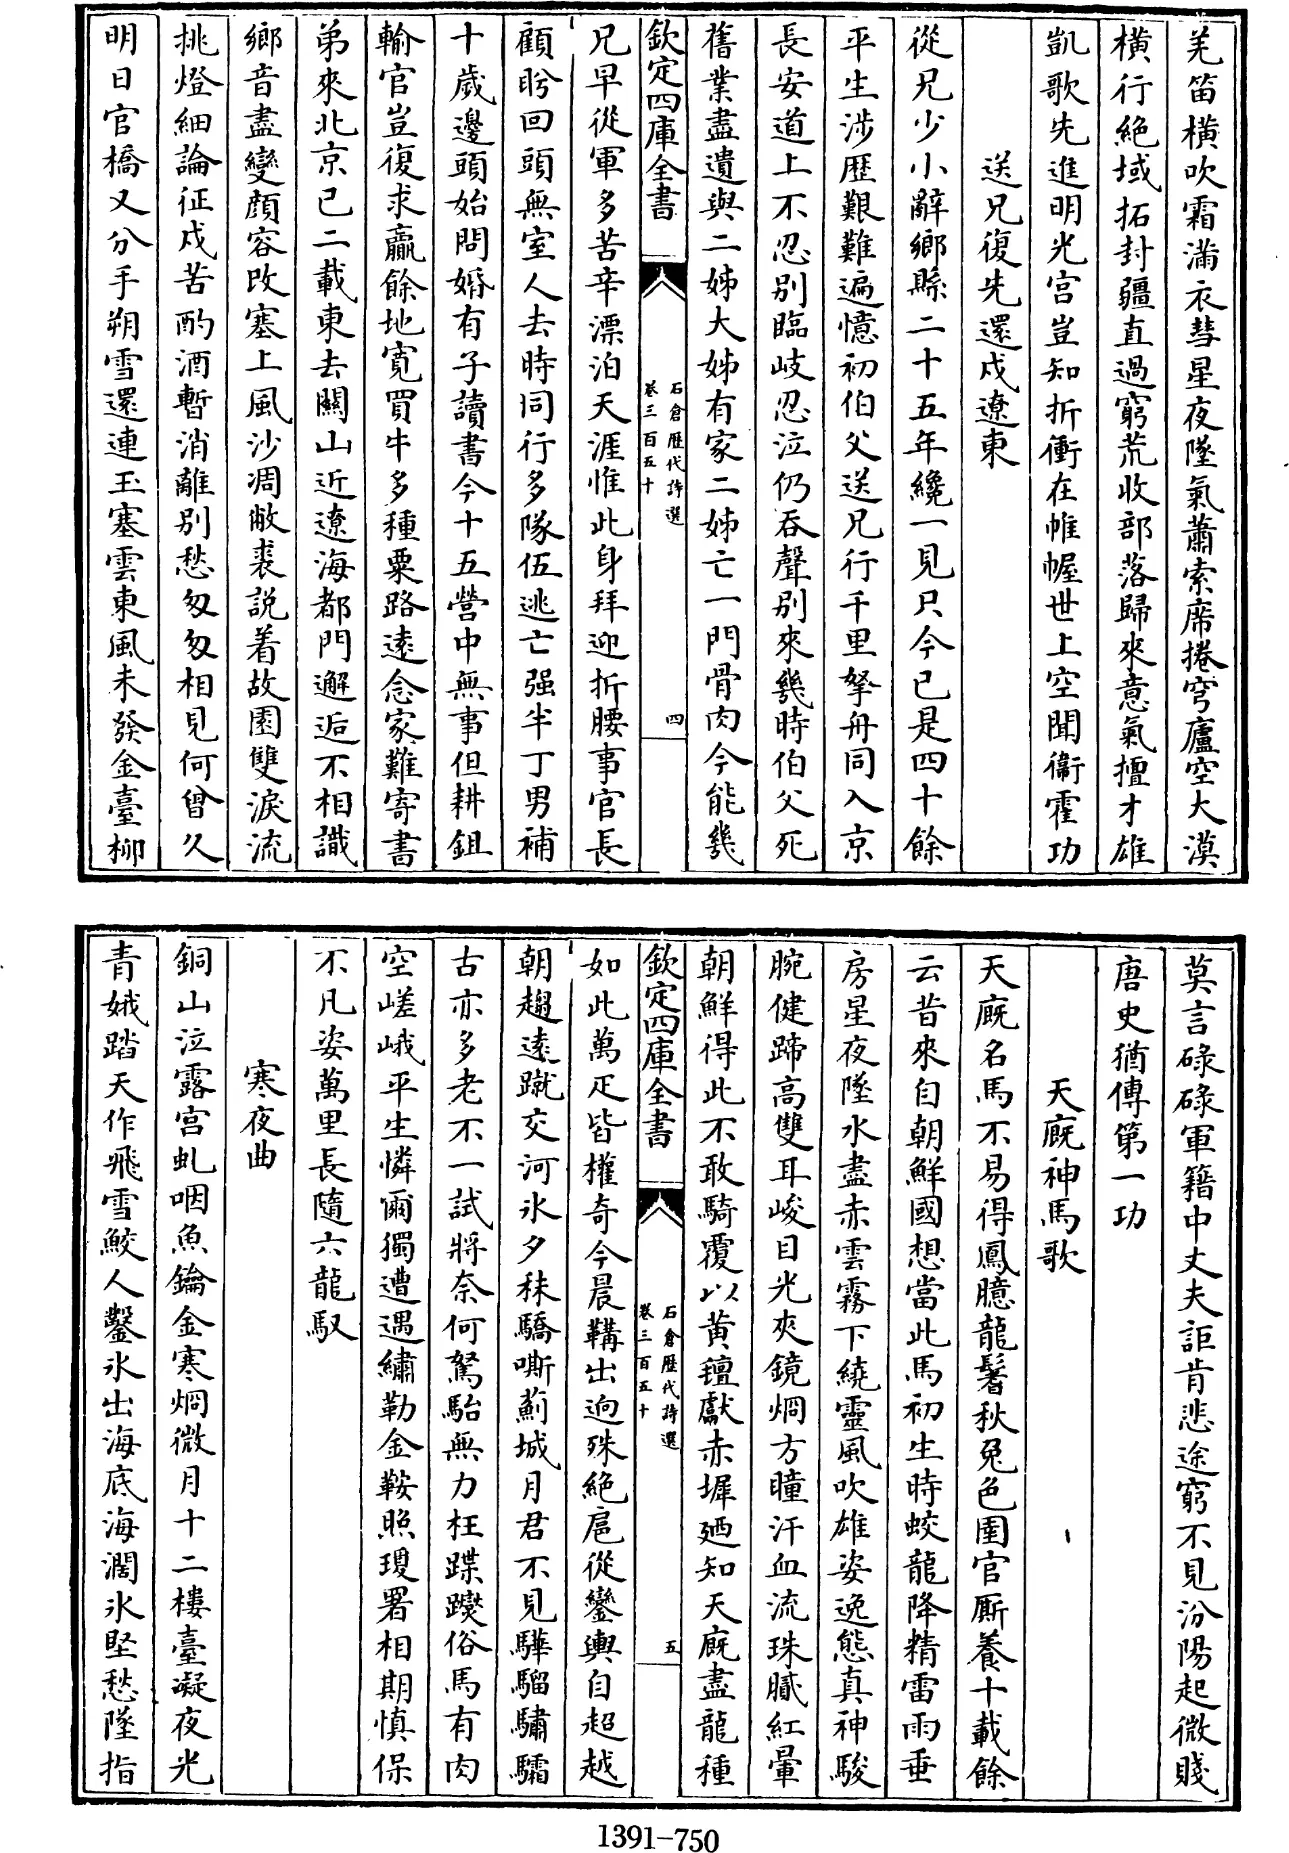 羌笛橫吹霜滿衣彗星夜墜氣蕭索席捲穹廬空大漠
橫行絶域拓封疆直過窮荒收部落歸來意氣擅才雄
凱歌先進明光宫豈知折衝在帷幄世上空聞衞霍功
送兄復先還戍遼東
從兄少小辭鄉縣二十五年纔一見只今已是四十餘
平生涉歷艱難遍憶初伯父送兄行千里拏舟同入京
長安道上不忍别臨岐忍泣仍吞聲别來幾時伯父死
舊業盡遺與二姊大姊有家二姊亡一門骨肉今能幾
欽定四庫全書
石倉歷代詩選
卷三百五十
四
兄早從軍多苦辛漂泊天涯惟此身拜迎折腰事官長
顧盻回頭無室人去時同行多隊伍逃亡强半丁男補
十歲邊頭始問婚有子讀書今十五營中無事但耕鉏
輸官豈復求贏餘地寛買牛多種粟路遠念家難寄書
弟來北京已二載東去關山近遼海都門邂逅不相識
鄉音盡變顔容改塞上風沙凋敝裘説着故園雙淚流
挑燈細論征戍苦酌酒暫消離别愁匆匆相見何曾久
明日官橋又分手朔雪還連玉塞雲東風未發金臺柳
莫言碌碌軍籍中丈夫詎肯悲途窮不見汾陽起微賤
唐史猶傳第一功
天廐神馬歌
天廐名馬不易得鳳臆龍鬐秋兔色圉官厮養十載餘
云昔來自朝鮮國想當此馬初生時蛟龍降精雷雨垂
房星夜墜水盡赤雲霧下繞靈風吹雄姿逸態真神駿
腕健蹄高雙耳峻目光夾鏡烱方瞳汗血流珠膩紅暈
朝鮮得此不敢騎覆以黄䄠獻赤墀廼知天廐盡龍種
欽定四庫全書
石倉歷代詩選
卷三百五十
五
如此萬疋皆權奇今晨鞲出逈殊絶扈從鑾輿自超越
朝趨遠蹴交河氷夕秣驕嘶薊城月君不見驊騮驌驦
古亦多老不一試將奈何駑駘無力枉蹀躞俗馬有肉
空嵯峨平生憐爾獨遭遇繡勒金鞍照瓊署相期慎保
不凡姿萬里長隨六龍馭
寒夜曲
銅山泣露宫虬咽魚鑰金寒烱微月十二樓臺凝夜光
青娥踏天作飛雪鮫人鑿氷出海底海濶氷堅愁墮指
1391-750